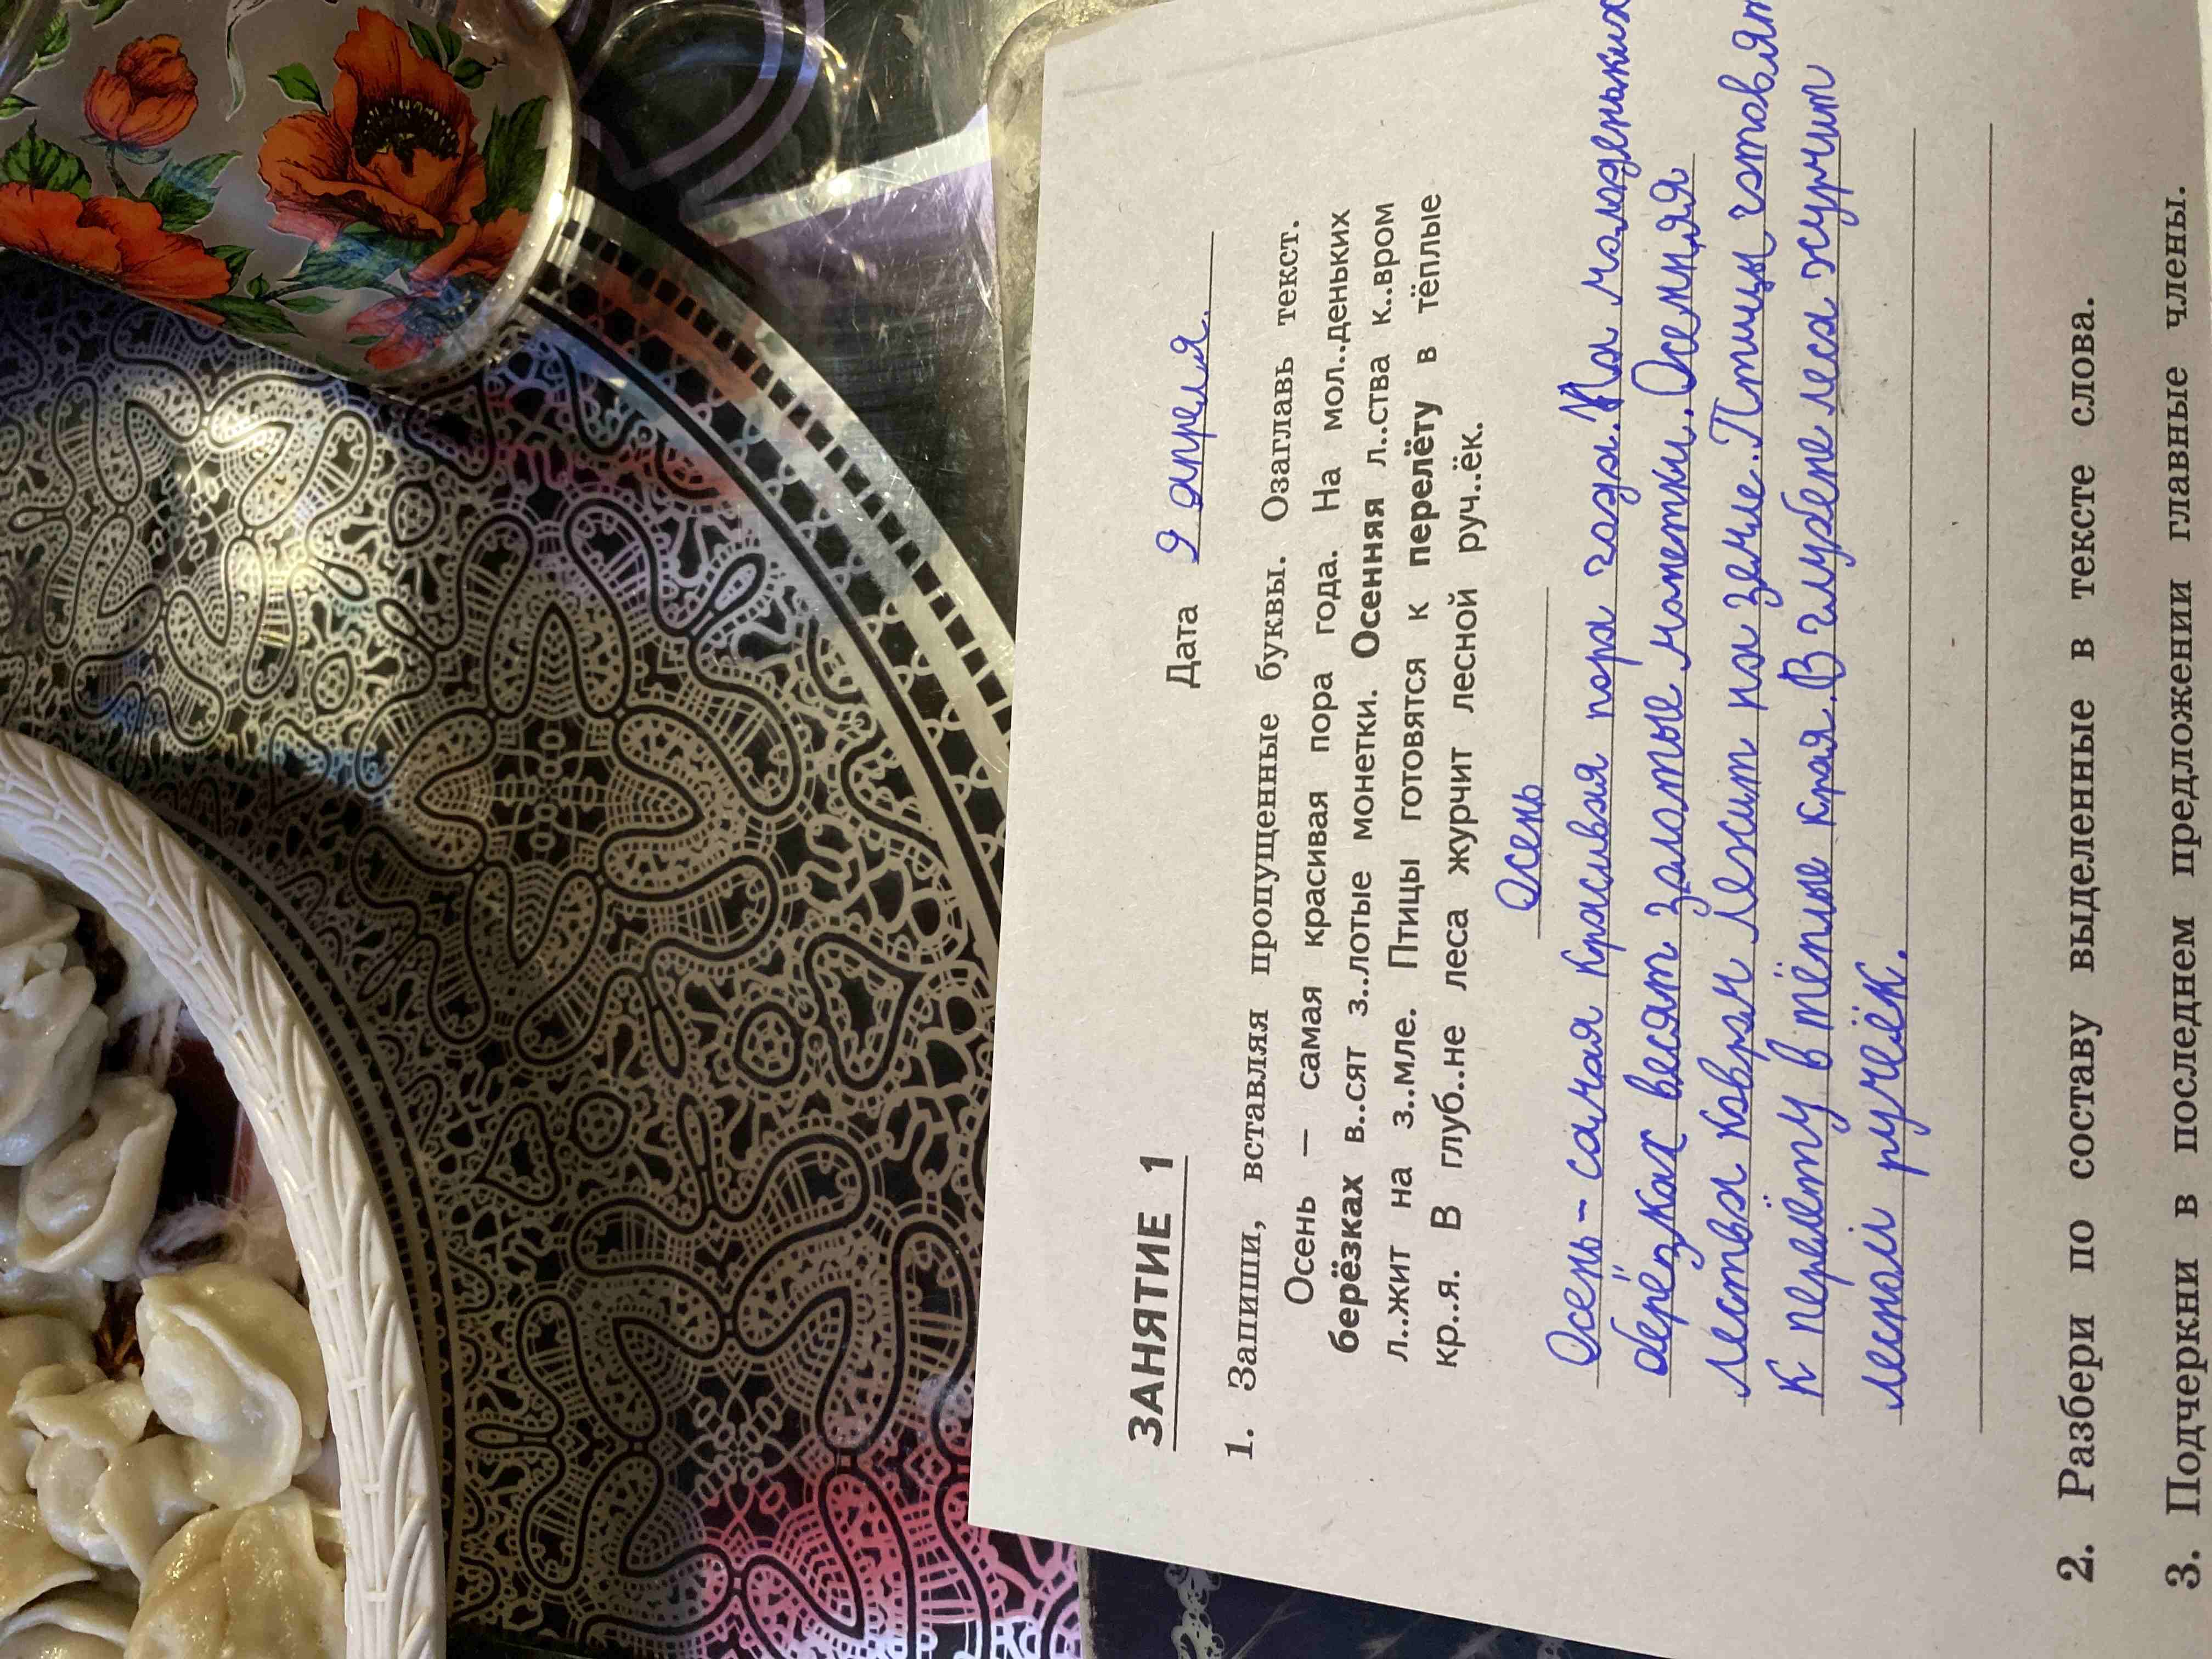 ЗАНЯТИЕ 1
Дата 9 апреля.
1. Запиши, вставляя пропущенные буквы. Озаглавь текст.
Осень – самая красивая пора года. На мол..деньких
берёзках в..сят з..лотые монетки. Осенняя л..ства к..вром
л..жит на з..мле. Птицы готовятся к перелёту в тёплые
кр..я. В глуб..не леса журчит лесной руч..ёк.
Осень
Осень – самая красивая пора года. На молоденьких
берёзках весят золотые монетки. Осенняя
лества ковром лежит на земле. Птицы готовят
к перелёту в тёплые края. В глубене леса журчит
лесной ручеёк.
2. Разбери по составу выделенные в тексте слова.
3. Подчеркни в последнем предложении главные члены.